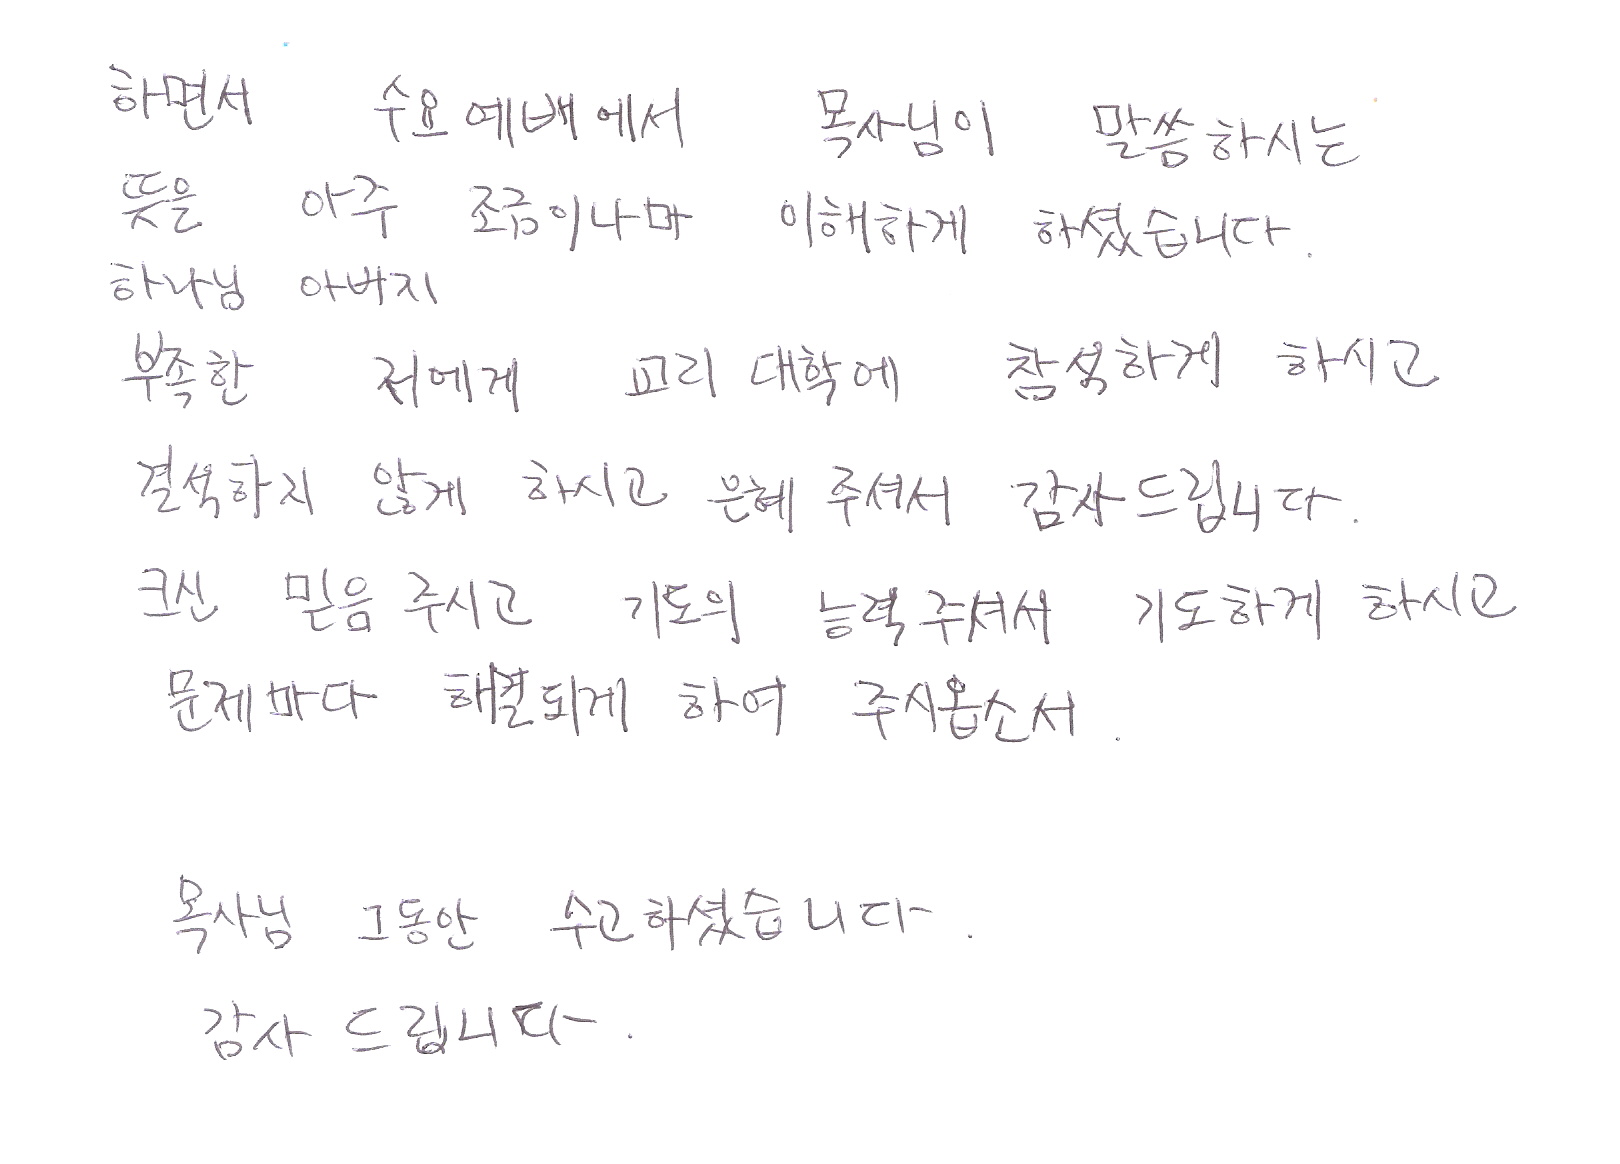 하면서 수요예배에서 목사님이 말씀하시는
뜻을 아주 조금이나마 이해하게 하셨습니다.
하나님 아버지
부족한 저에게 교리 대학에 참석하게 하시고
결석하지 않게 하시고 은혜 주셔서 감사드립니다.
크신 믿음 주시고 기도의 능력 주셔서 기도하게 하시고
문제마다 해결되게 하여 주시옵소서.
목사님 그동안 수고하셨습니다.
감사 드립니다.